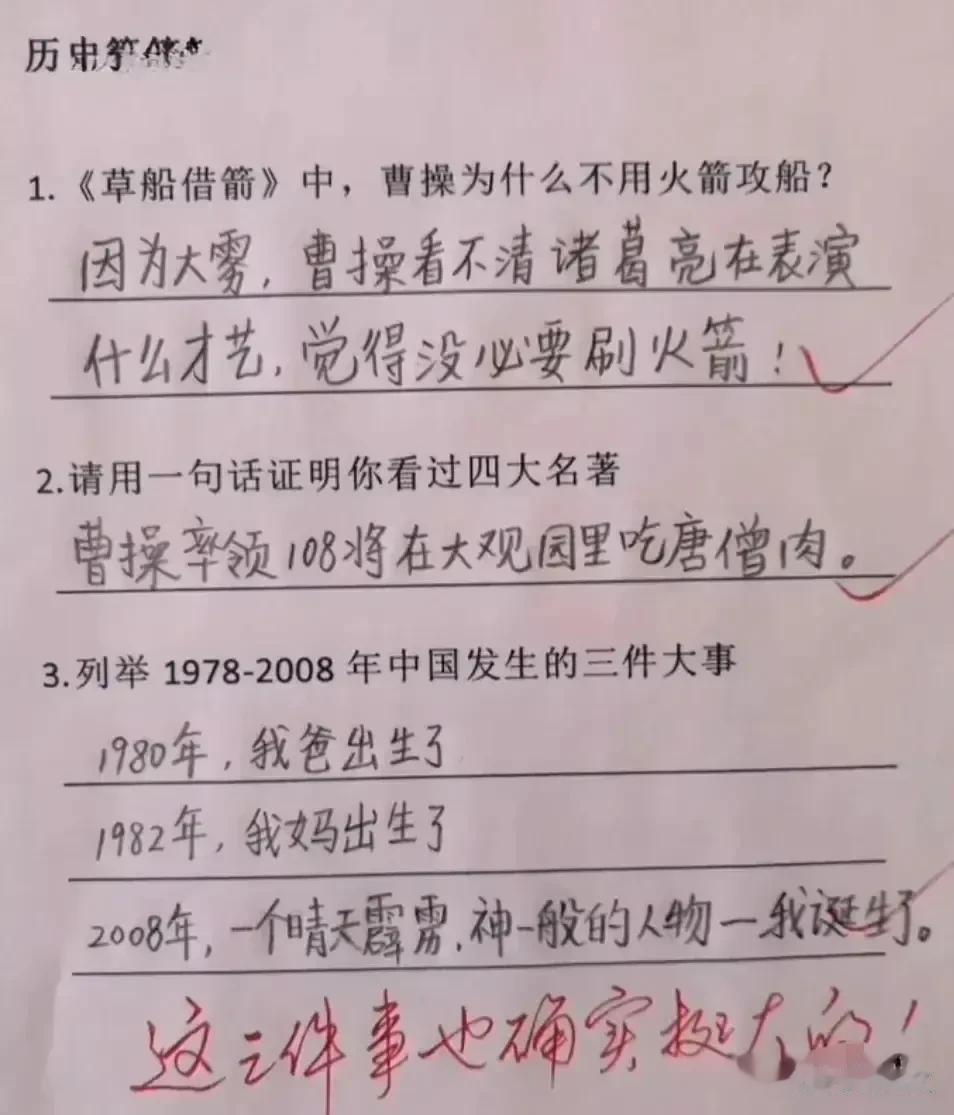 历史
1.《草船借箭》中，曹操为什么不用火箭攻船？
因为大雾，曹操看不清诸葛亮在表演
什么才艺，觉得没必要刷火箭！
2.请用一句话证明你看过四大名著
曹操率领108将在大观园里吃唐僧肉。
3.列举1978-2008年中国发生的三件大事
1980年，我爸出生了
1982年，我妈出生了
2008年，一个晴天霹雳，神一般的人物一我诞生了。
这三件事也确实挺大的！